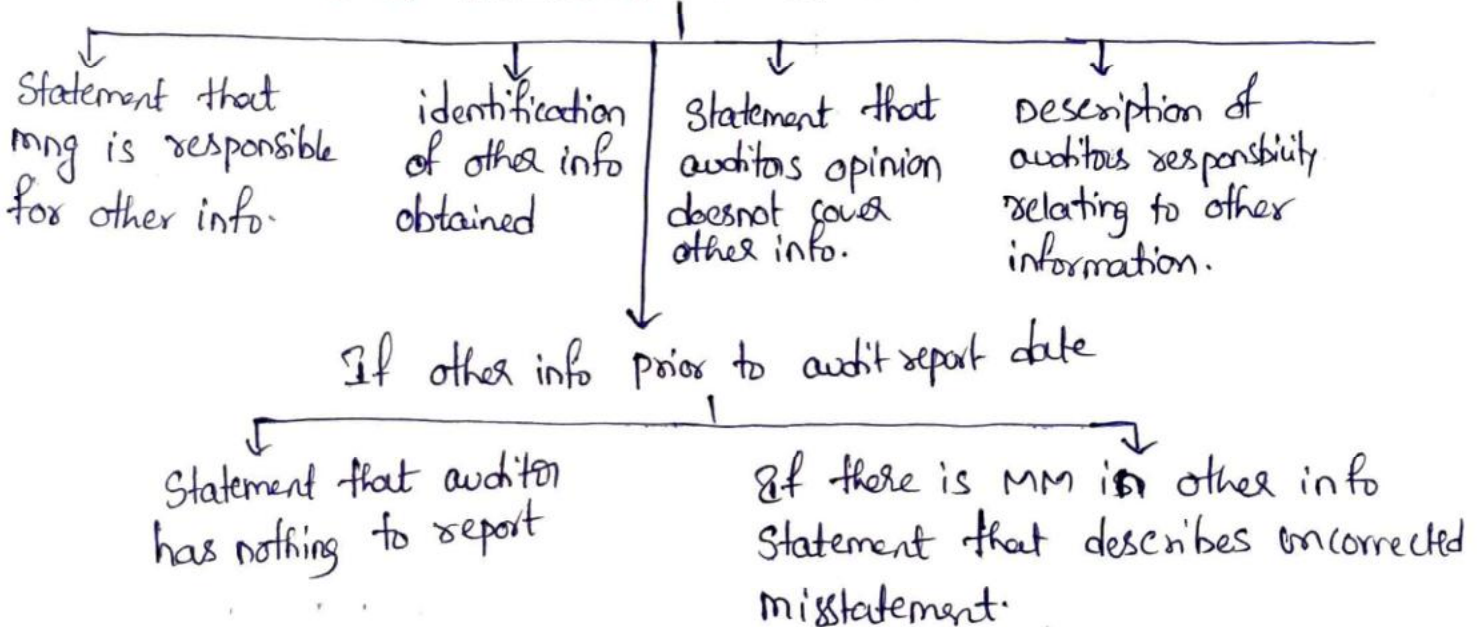 Statement that
mng is responsible
for other info.
identification
of other info
obtained
Statement that
auditors opinion
doesnot cover
other info.
Description of
auditors responsbility
relating to other
information.
If other info prior to audit report date
Statement that auditor
has nothing to report
If there is MM in other info
Statement that describes uncorrected
misstatement.